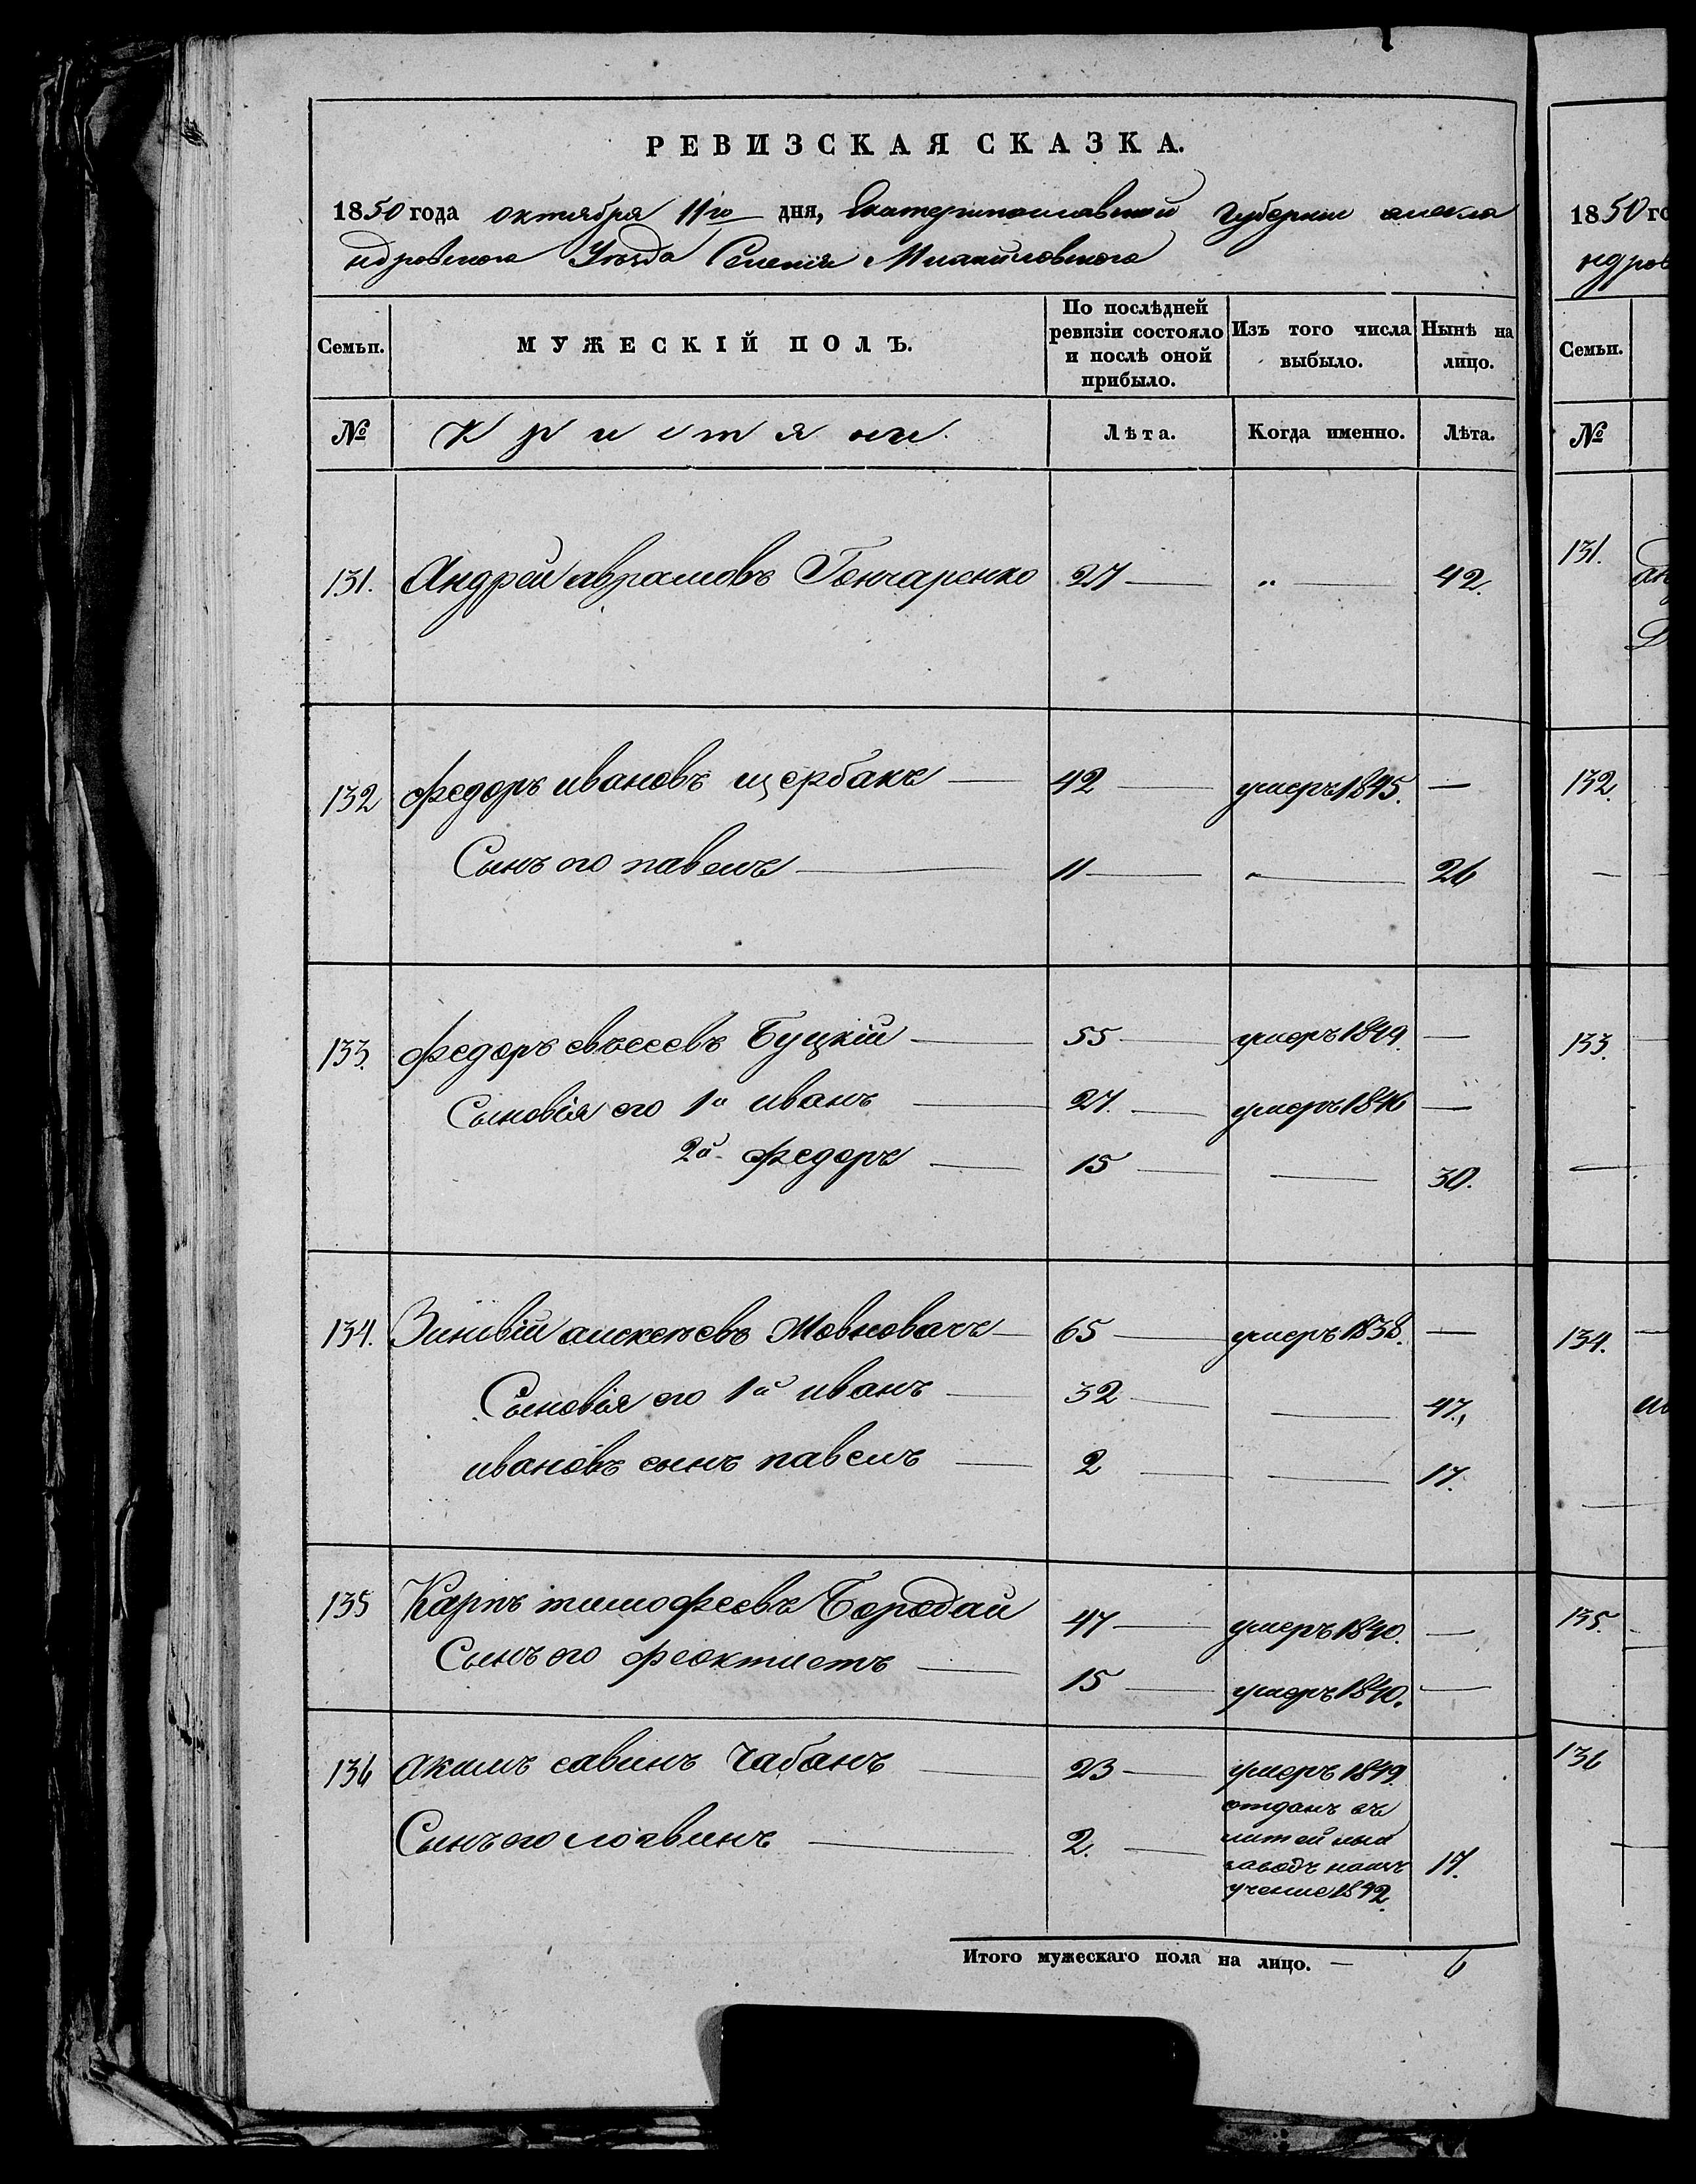 РЕВИЗСКАЯ СКАЗКА.
1850 года октября 11го дня, Екатеринославской Губернии алекса
ндровского Уѣзда Селенія Михайловского
Семьи. МУЖЕСКІЙ ПОЛЪ. По послѣдней ревизіи состояло и послѣ оной прибыло. Изъ того числа выбыло. Нынѣ на лицо.
№ Кристяни. Лѣта. Когда именно. Лѣта.
131. Андрей аврамовъ Гончаренко 27 — „ — 42.
132 федоръ ивановъ щербакъ — 42 — умеръ 1845. —
Сынъ его павелъ — 11 — „ — 26
133. федоръ евсеевъ Буцкій — 55 — умеръ 1849. —
Сыновія его 1й иванъ — 27. — умеръ 1846 —
2й федоръ — 15 — — 30.
134. Зиновій алексеевъ Мовновачъ — 65 — умеръ 1838. —
Сыновія его 1й иванъ — 32 — — 47.,
ивановъ сынъ павелъ — 2 — — 17.
135 Карпъ тимофеевъ Бородай 47 — умеръ 1840. —
Сынъ его феоктистъ — 15 — умеръ 1840. —
136 акимъ савинъ Чабанъ — 23 — умеръ 1849.
Сынъ его логвинъ — 2. — отданъ въ
литейный
заводъ 17.
учение 1842.
Итого мужескаго пола на лицо. — 6
1850 го
ндров
Семьи.
№
131.
132.
133.
134.
135.
136